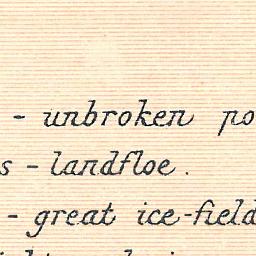 - unbroken po
s - landfloe.
- great ice-field